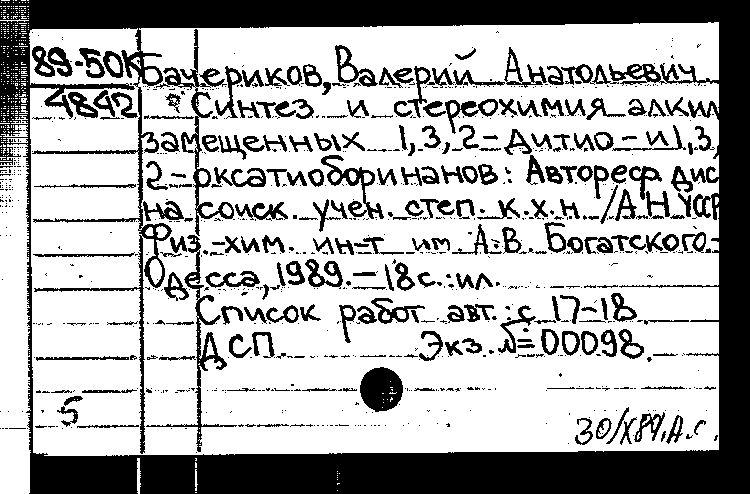 89-50К Бачериков, Валерий Анатольевич
4842 Синтез и стереохимия алкил
замещенных 1,3,2-дитио-и1,3,
2-оксатиоборинанов: Автореф. дис
на соиск. учен. степ. к.х.н /АН УССР
Физ.-хим. ин-т им. А.В. Богатского.-
Одесса, 1989.-18с.:ил.
Список работ авт.: с. 17-18.
ДСП. Экз. №=00098.
5
30/X89.А.с.